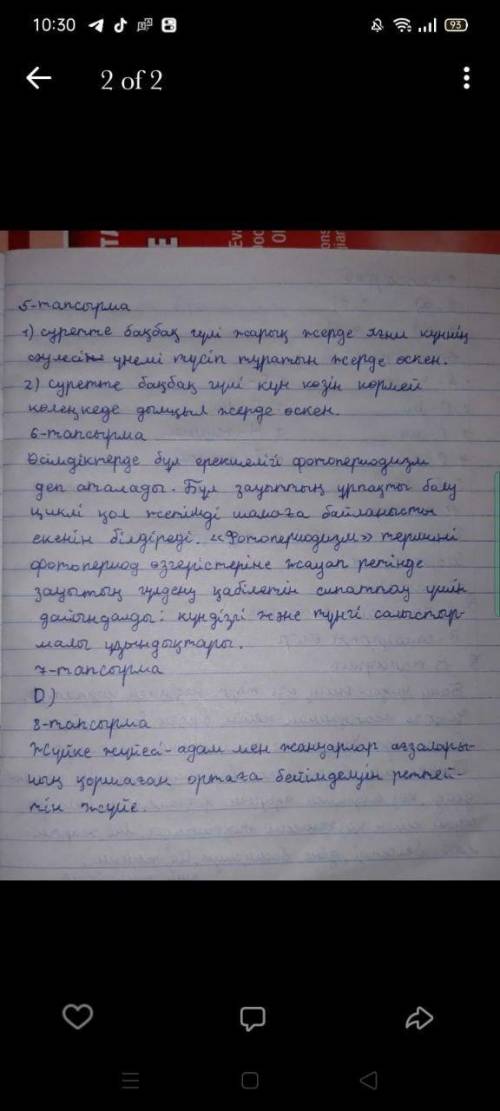 10:30
93
2 of 2
5-тапсырма
1) суретте бақбақ гүлі жарық жерде яғни күннің
сәулесі үнемі түсіп тұратын жерде өскен.
2) суретте бақбақ гүлі күн көзін көрмей
көлеңкеде дымқыл жерде өскен.
6-тапсырма
Өсімдіктерде бұл ерекшелік фотопериодизм
деп аталады. Бұл зауыттың ұрпақты болу
циклі қол жетімді шамаға байланысты
екенін білдіреді. «Фотопериодизм» термині
фотопериод өзгерістеріне жауап ретінде
зауытың гүлдену қабілетін сипаттау үшін
дайындалды: күндізгі және түнгі салыстыр-
малы ұзындықтары.
7-тапсырма
D)
8-тапсырма
Жүйке жүйесі - адам мен жануарлар ағзалары-
ның қоршаған ортаға бейімделуін реттей-
тін жүйе.